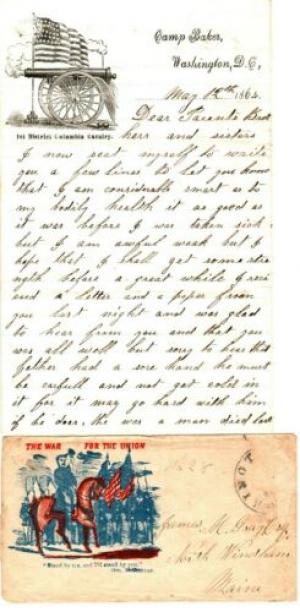 Camp Baker,
Washington, D.C,
May 12th 1864
1st District Columbia Cavalry.
Dear Parents Brot
hers and sisters
I now seat myself to write
you a few lines to let you know
that I am considrable smart as to
my bodily health it as good as
it was before I was taken sick
but I am awful weak but I
hope that I shall get some stre
ngth before a great while I rec
eved a letter and a paper from
you last night and was glad
to hear from you and that you
was all well but sorry to hear that
father had a sore hand he must
be carfull and not get cold in
it for it may go hard with him
if he does, the was a man died last
THE WAR FOR THE UNION
"Stand by me, and I'll stand by you."
Gen.
James M.
North Windham
Maine